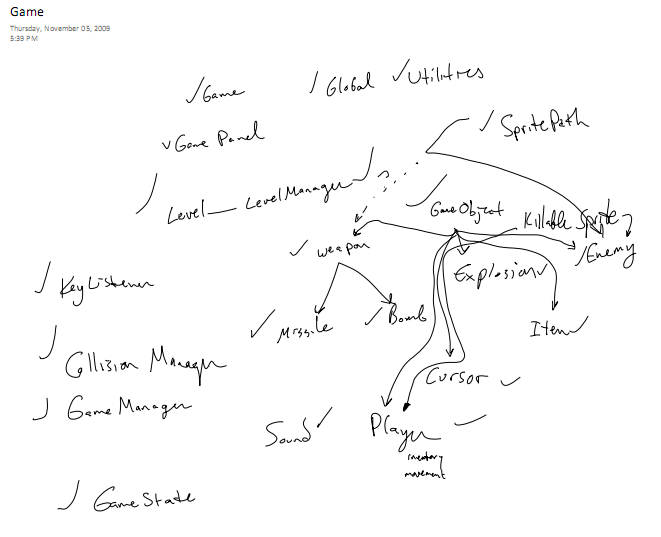 Game
Thursday, November 05, 2009
5:39 PM
Game Global Utilities
Game Panel
SpritePath
Level LevelManager
GameObject
Killable Sprite ?
weapon
Explosion
Enemy
KeyListener
Missile Bomb
Item
Collision Manager
Cursor
GameManager
Sound
Player
inventory
movement
GameState